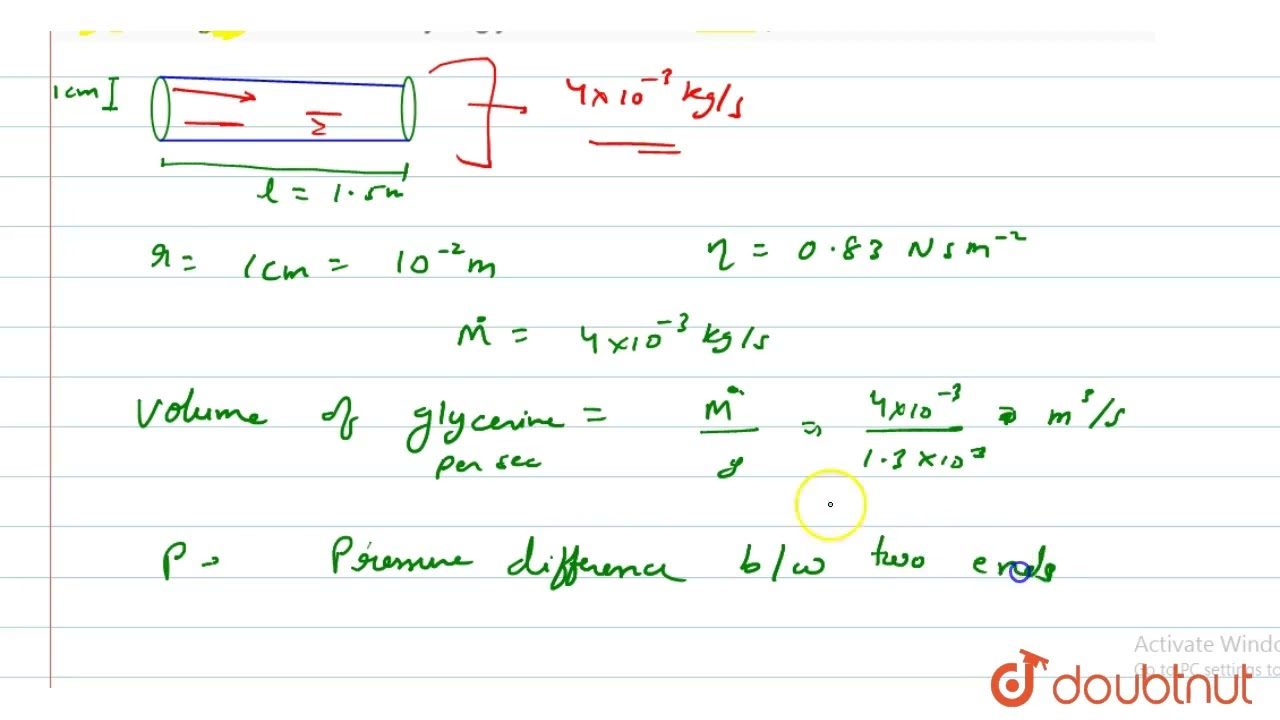 1cm
4×10⁻³ kg/s
l = 1.5m
r = 1cm = 10⁻² m
η = 0.83 N s m⁻²
Ṁ = 4×10⁻³ kg/s
Volume of glycerine per sec = Ṁ/ρ = 4×10⁻³ / 1.3×10³ m³/s
P → Pressure difference b/w two ends
Activate Windo
Go to PC settings to
doubtnut